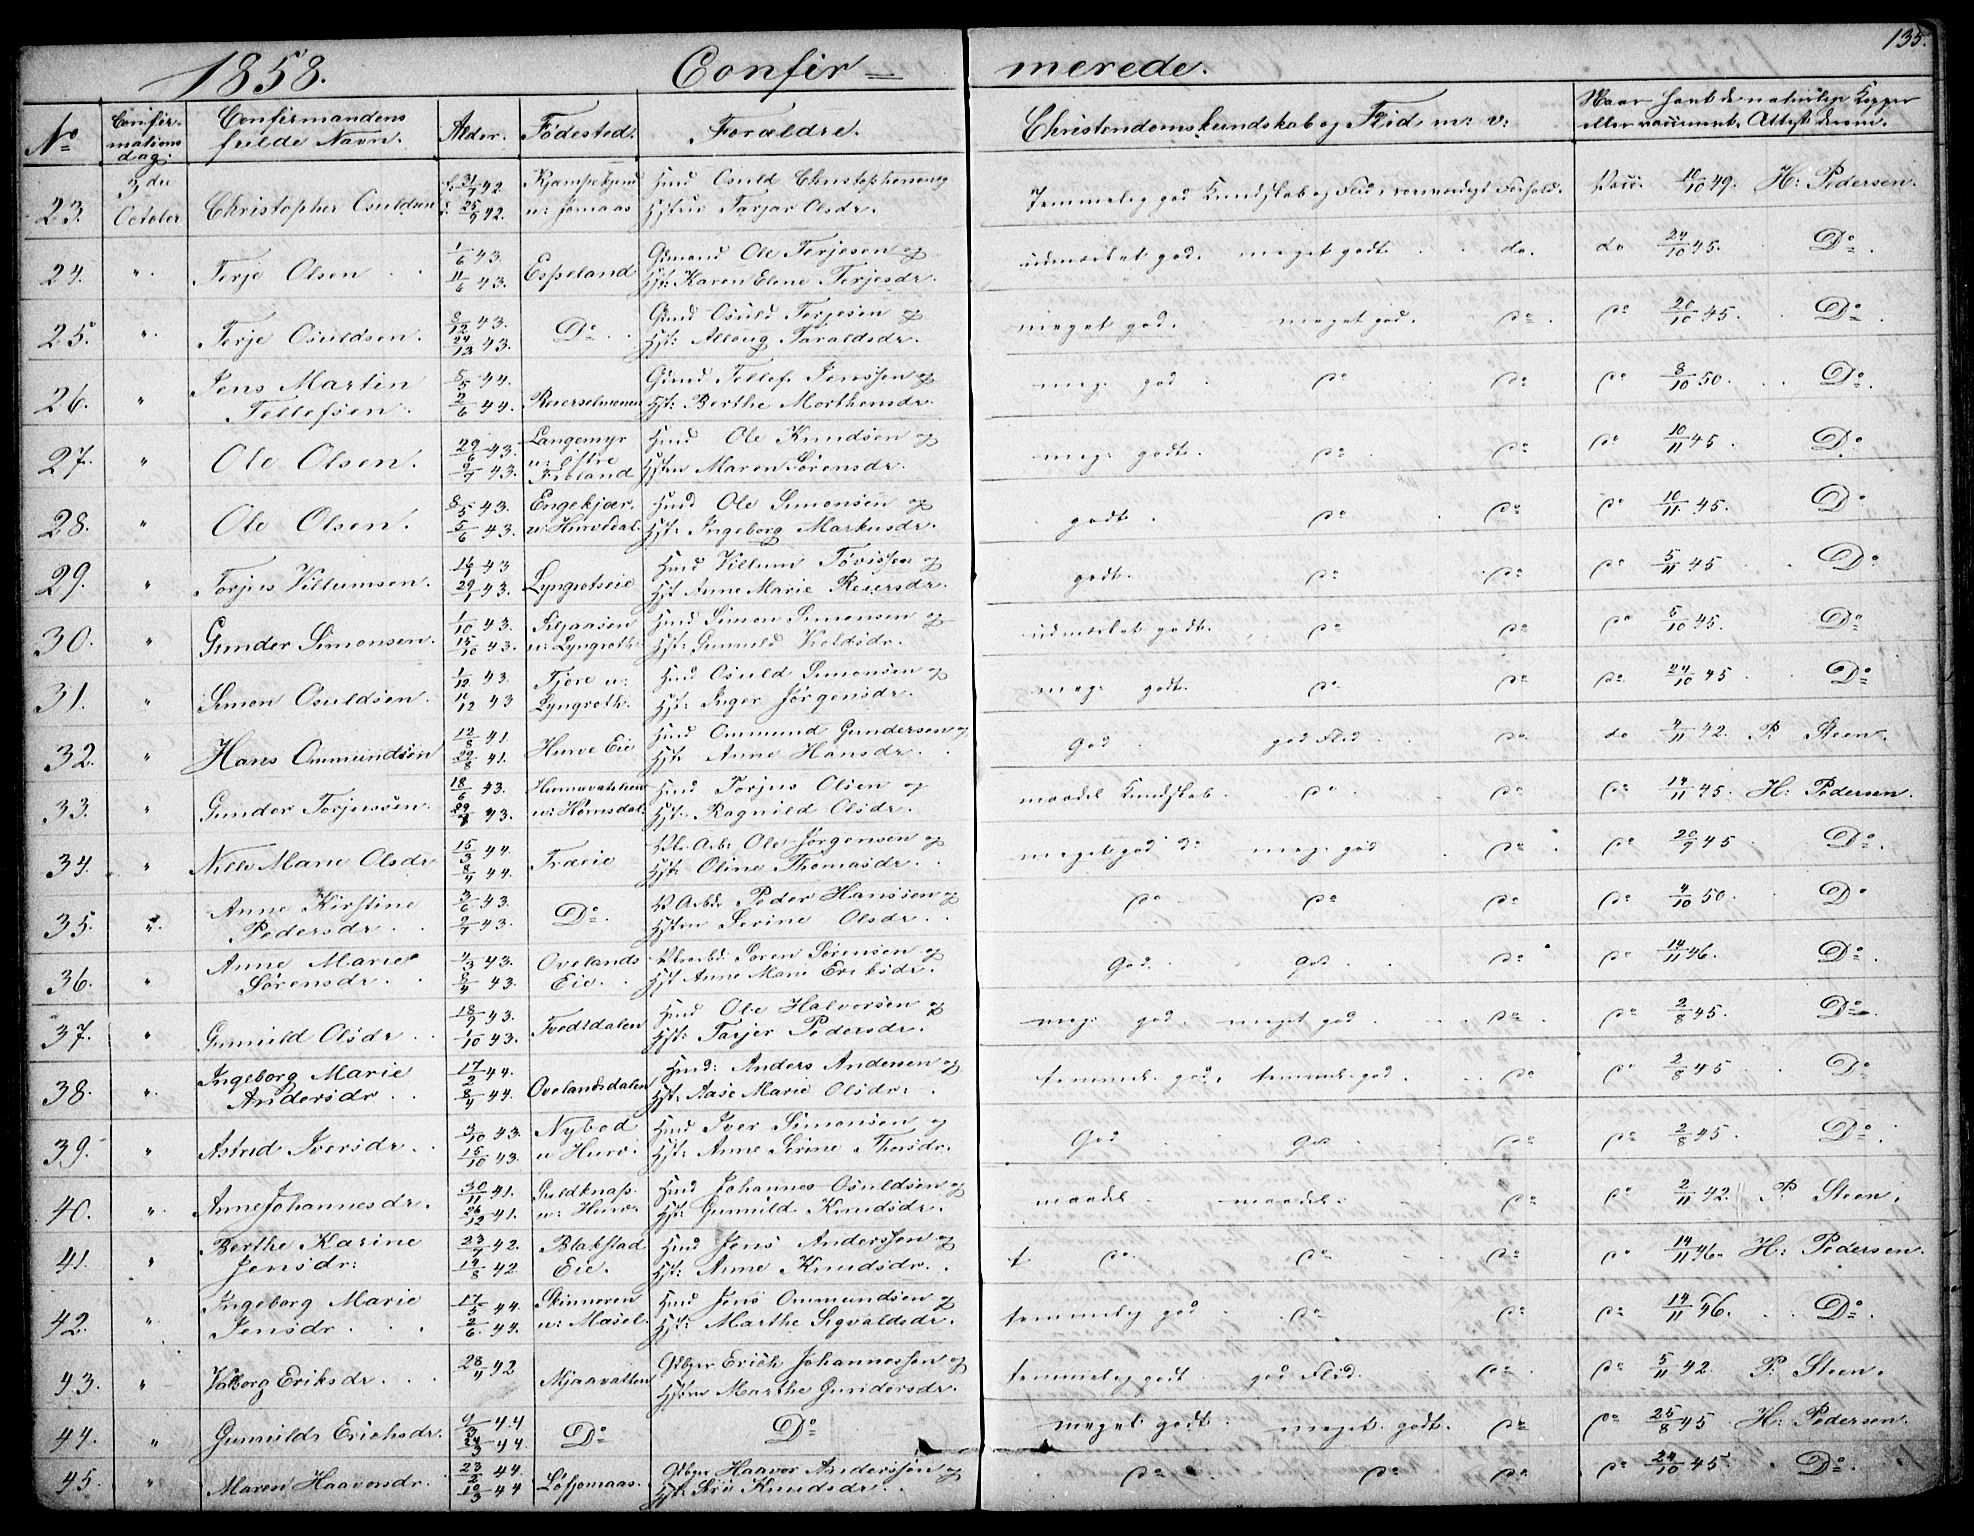 135.
1858. Confir= merede.
No Confirmations dag: Confirmandens fulde Navn. Alder. Fødested. Forældre. Christendomskundskab og Flid m: v:
23. 3die October Christopher Osuldsen 31/7 42 25/9 42. u: Jomaas Hmd Osuld Christophersen og Hustrue Tarjer Olsdr. Temmelig god Kundskab og Flid, Forhold. 10/10 49. H: Pedersen.
24. " Terje Olsen 1/6 43. 11/6 43. Espeland Gdmand Ole Terjesen og Hst: Karen Elene Terjesdr. udmærket god. meget godt do. do 24/10 45. Do
25. " Terje Osuldsen. 8/12 43. Do Gmd Osuld Terjesen og Hst: Allaug Taraldsdr. meget god. meget god. Do Do 20/10 45. Do
26. " Jens Martin Tellefsen. 8/5 44. 2/6 44. Gmd Tellef Jenssen og Hst: Berthe Morthensdr. meg: god Do Do Do 8/10 50. Do
27. " Ole Olsen. 29/6 43. 9/7 43. Langemyr u: Østre Hmd Ole Knudsen og Hstru Maren Sørensdr. meg: godt. Do Do Do 10/11 45. Do
28. " Ole Olsen. 8/5 43. 5/6 43. Engekjær. u: Hurvedal. Hmd Ole Simonsen og Hst: Ingeborg Markusdr. godt. Do Do Do 10/11 45. Do
29. " Torjus Villumsen. 29/1 43. Lyngrotseie Hmd Villum Tovissen og Hst Anne Marie Reiersdr. godt. Do Do Do 5/11 45 Do
30. " Gunder Simonsen. 1/10 43. 15/10 43. u: Lyngroth Hmd Simon Simonsen og Hst: Gunnild Kieldsdr. udmærket godt. Do Do Do 5/10 45. Do
31. " Simon Osuldsen. 1/12 43. 11/12 43 Tjore u: Lyngroth. Hmd Osuld Simonsen og Hst: Inger Jørgensdr. meg: godt. Do Do Do 24/10 45 Do
32. " Hans Ommundsen 12/8 41 29/8 41. Hurve Eie Hmd Ommund Gundersen og Hst: Anne Hansdr. God god Flid Do do 4/11 42. P. Steen.
33. " Gunder Torjussen. 18/6 43. Hmd Torjus Olsen og Hst: Ragnild Olsdr. maadel. Kundskab. Do Do Do 14/11 45. H: Pedersen.
34. " Niels Marie Olsdr 15/3 44 8/4 44. Træeie Ole Jørgensen og Hst: Oline Thomasdr. meget god meg: god Do Do 20/9 45 Do
35. " Anne Kirstine Pedersdr. 3/6 43. 2/7 43. Do Peder Hanssen og Hstru Serine Olsdr. Do Do Do Do 4/10 50. Do
36. " Anne Marie Sørensdr. 4/3 43. Ovelands Eie. Søren Sørensen og Hst Anne Marie Eriksdr. God. God Do Do 14/11 46. Do
37. " Gunnild Olsdr. 18/9 43. 1/10 43. Tvedtdalen Hmd Ole Halvorsen og Hst: Tarjer Pedersdr. meg: god. meget god Do Do 2/8 45. Do
38. " Ingeborg Marie Andersdr 17/2 44. 8/4 44. Ovelandsdalen Hmd: Anders Andersen og Hst: Aase Marie Olsdr: temmel: god, temmel: god. Do Do 2/8 45 Do
39. " Astrid Iversdr. 3/10 43. 15/10 43. Nybod u Hurv: Hmd Iver Simonsen og Hst: Anne Serine Thorsdr. God God Do Do 2/8 45. Do
40. " Anne Johannesdr. 30/11 41. 26/12 41. Guldknap. u: Hurv: Hmd Johannes Osuldsen og Hst: Gunnild Knudsdr. maadel maadel. Do Do 2/11 42. P. Steen.
41. " Berthe Karine Jensdr: 23/7 42. 14/8 42. Blakstad Eie. Hmd Jens Anderssen og Hst: Anne Knudsdr. Do Do Do Do 14/11 46. H: Pedersen.
42. " Ingeborg Marie Jensdr. 17/5 44. 2/6. 44. Skinneren u: Masel. Hmd Jens Ommundsen og Hst: Marthe Sigvaldsdr. temmelig god Do Do Do 14/11 46. Do
43. " Valborg Eriksdr. 28/11 42 Mjaavatten Erich Johannessen og Marthe Gundersdr. temmelig godt god Flid. Do Do 5/11 42. P. Steen.
44. " Gunnild Erichsdr. 9/3 44 24/3 44. Do Do meget godt. meget godt. Do Do 25/8 45 H: Pedersen.
45. " Maren Haavorsdr. 23/2 44. 10/3 44 Løfjomaas. Haavor Anderssen og Hst: Siri Knudsdr. Do Do Do Do 24/10 45 Do